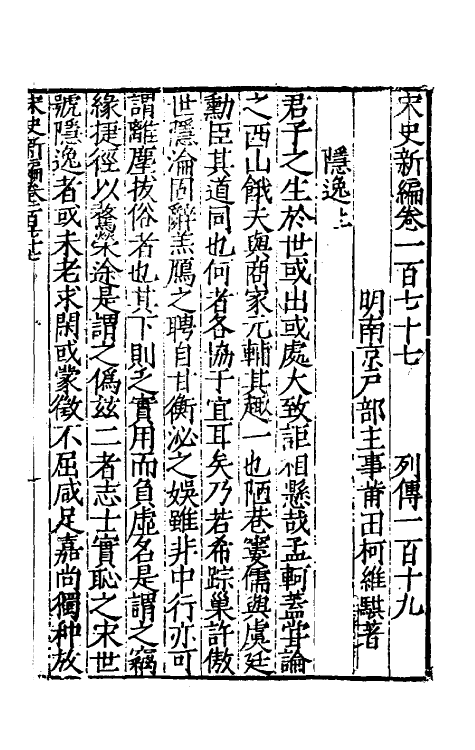 宋史新編卷一百七十七　　　列傳一百十九
明南京戸部主事莆田柯維騏著
隱逸上
君子之生於世或出或處大致詎相懸哉孟軻蓋甞論
之西山餓夫與商家元輔其趣一也陋巷窶儒與虞廷
勳臣其道同也何者各協于宜耳矣乃若希踪巢許傲
世隱淪固辭羔鴈之聘自甘衡泌之娛雖非中行亦可
謂離塵拔俗者也其下則乏實用而負虛名是謂之竊
緣捷徑以騖榮途是謂之僞玆二者志士實恥之宋世
號隱逸者或未老求閑或蒙徵不屈咸足嘉尚獨种放
宋史新編卷一百七十七